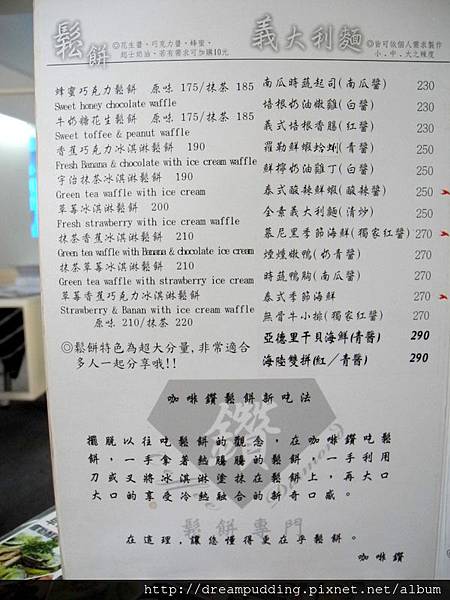 鬆餅
◎花生醬、巧克力醬、蜂蜜、
起士奶油,若有需求可加購10元
蜂蜜巧克力鬆餅 原味 175/抹茶 185
Sweet honey chocolate waffle
牛奶糖花生鬆餅 原味 175/抹茶 185
Sweet toffee & peanut waffle
香蕉巧克力冰淇淋鬆餅 190
Fresh Banana & chocolate with ice cream waffle
宇治抹茶冰淇淋鬆餅 190
Green tea waffle with ice cream
草莓冰淇淋鬆餅 200
Fresh strawberry with ice cream waffle
抹茶香蕉冰淇淋鬆餅 210
Green tea waffle with Banana & chocolate ice cream
抹茶草莓冰淇淋鬆餅 210
Green tea waffle with strawberry ice cream
草莓香蕉巧克力冰淇淋鬆餅
Strawberry & Banan with ice cream waffle
原味 210/抹茶 220
◎鬆餅特色為超大分量,非常適合
多人一起分享哦!!
義大利麵
◎皆可依個人需求製作
小、中、大之辣度
南瓜時蔬起司(南瓜醬) 230
培根奶油燉雞(白醬) 230
義式培根香腸(紅醬) 230
羅勒鮮蝦蛤蜊(青醬) 250
鮮檸奶油雞丁(白醬) 250
泰式酸辣鮮蝦(酸辣醬) 250
全素義大利麵(清炒) 250
慕尼里季節海鮮(獨家紅醬) 270
煙燻嫩鴨(奶青醬) 270
時蔬鴨胸(南瓜醬) 270
泰式季節海鮮 270
無骨牛小排(獨家紅醬) 270
亞德里干貝海鮮(青醬) 290
海陸雙拼(紅/青醬) 290
咖啡鑽鬆餅新吃法
鑽
Diamond
擺脫以往吃鬆餅的觀念,在咖啡鑽吃鬆
餅,一手拿著熱騰騰的鬆餅,一手利用
刀或叉將冰淇淋塗抹在鬆餅上,再大口
大口的享受冷熱融合的新奇口感。
鬆餅專門
在這裡,讓您懂得更在乎鬆餅。
咖啡鑽
http://dreampudding.pixnet.net/album